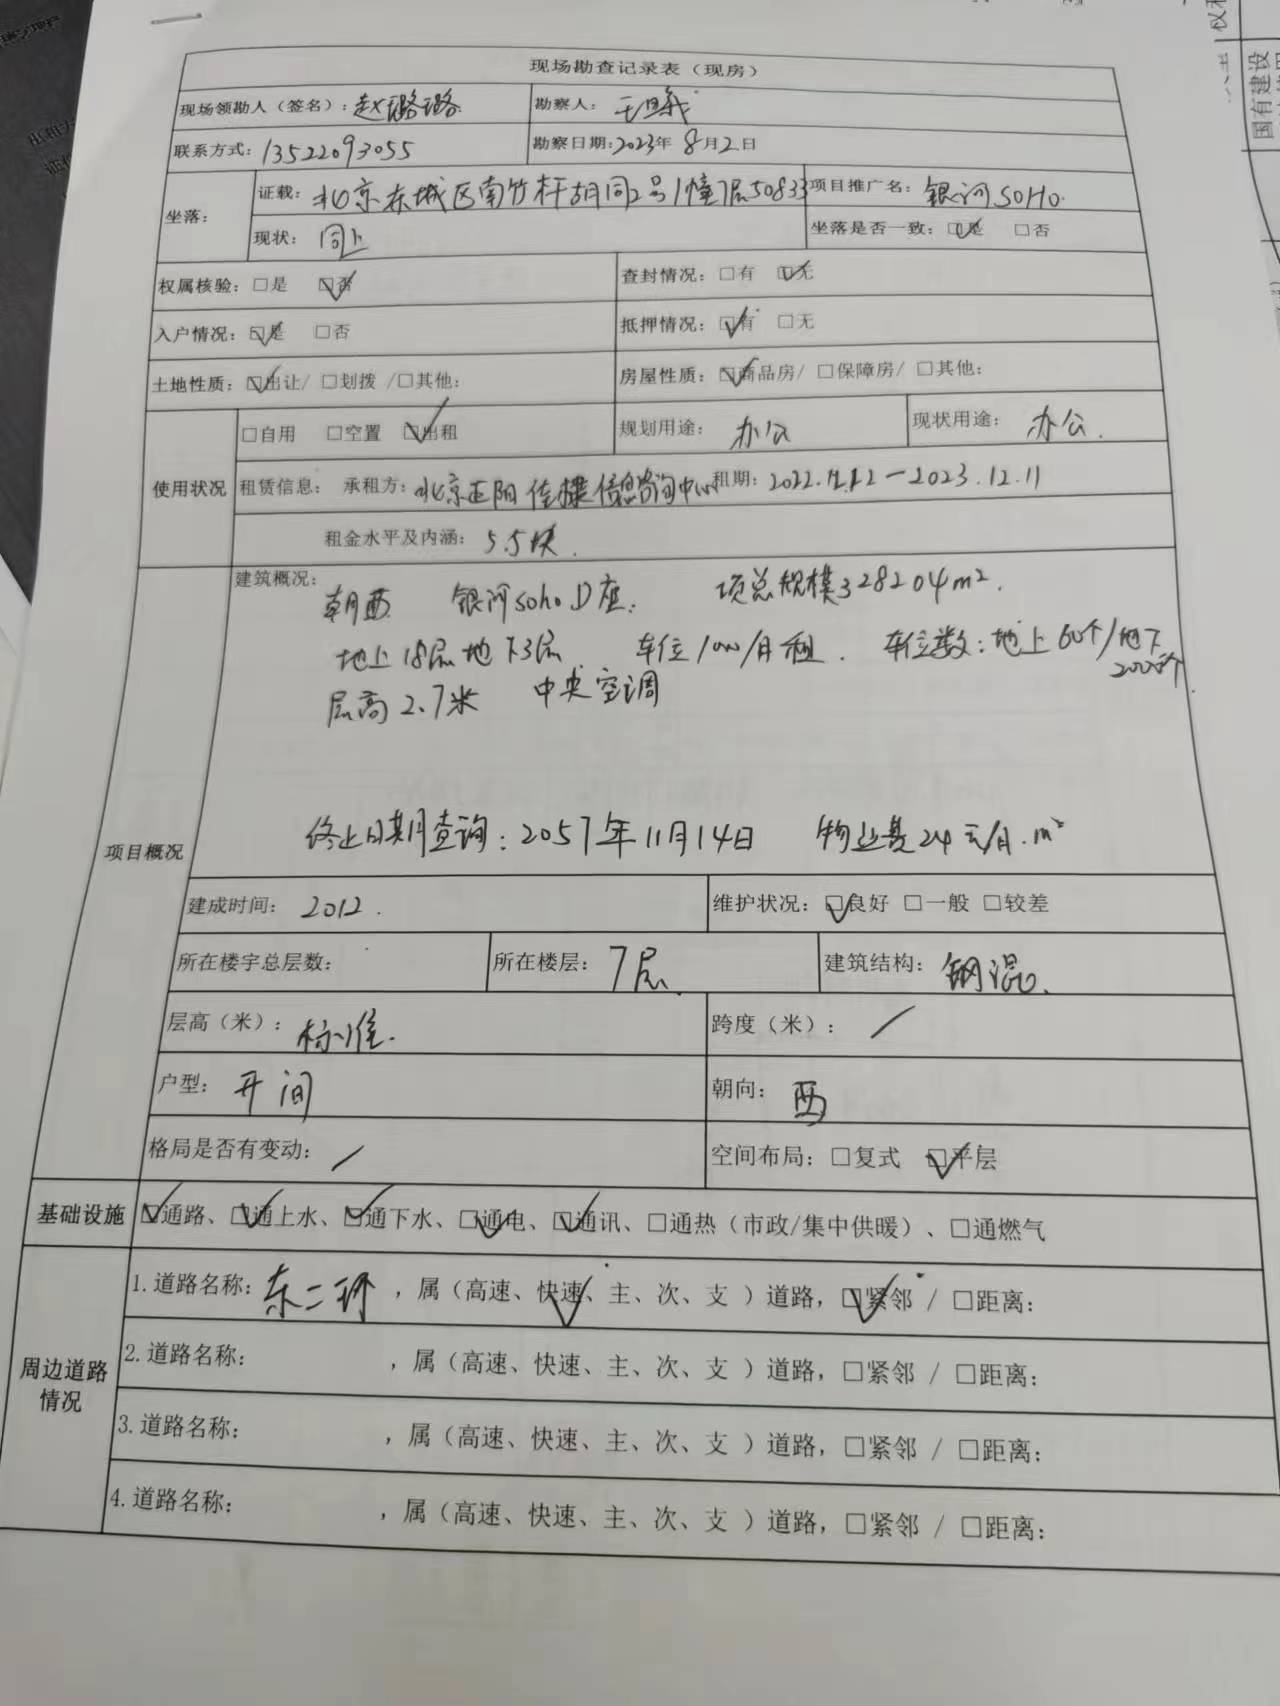 现场勘查记录表（现房）
现场领勘人（签名）：赵璐璐 勘察人：
联系方式：13522093055 勘察日期：2023年8月2日
坐落： 证载：北京东城区南竹杆胡同2号1幢7层50833 项目推广名：银河SOHO.
现状：同上 坐落是否一致：☑是 □否
权属核验：□是 ☑否 查封情况：□有 ☑无
入户情况：☑是 □否 抵押情况：☑有 □无
土地性质：☑出让/ □划拨 /□其他： 房屋性质：☑商品房/ □保障房/ □其他：
使用状况 □自用 □空置 ☑出租 规划用途：办公 现状用途：办公.
租赁信息： 承租方：北京正阳佳 信息咨询中心 租期：2022.12.12－2023.12.11
租金水平及内涵：5.5块.
项目概况 建筑概况：
朝西 银河soho D座. 项总规模328204m².
地上18层地下3层 车位1000/月租. 车位数：地上60个/地下
层高2.7米 中央空调
终止日期查询：2057年11月14日 物业费24元/月.m²
建成时间：2012. 维护状况：☑良好 □一般 □较差
所在楼宇总层数： 所在楼层：7层. 建筑结构：钢混.
层高（米）：标准. 跨度（米）：/
户型：开间 朝向：西
格局是否有变动：/ 空间布局：□复式 ☑平层
基础设施 ☑通路、☑通上水、☑通下水、☑通电、☑通讯、□通热（市政/集中供暖）、□通燃气
周边道路情况 1.道路名称：东二环，属（高速、快速✓、主、次、支 ）道路，☑紧邻 / □距离：
2.道路名称： ，属（高速、快速、主、次、支 ）道路，□紧邻 / □距离：
3.道路名称： ，属（高速、快速、主、次、支 ）道路，□紧邻 / □距离：
4.道路名称： ，属（高速、快速、主、次、支 ）道路，□紧邻 / □距离：
国有建设